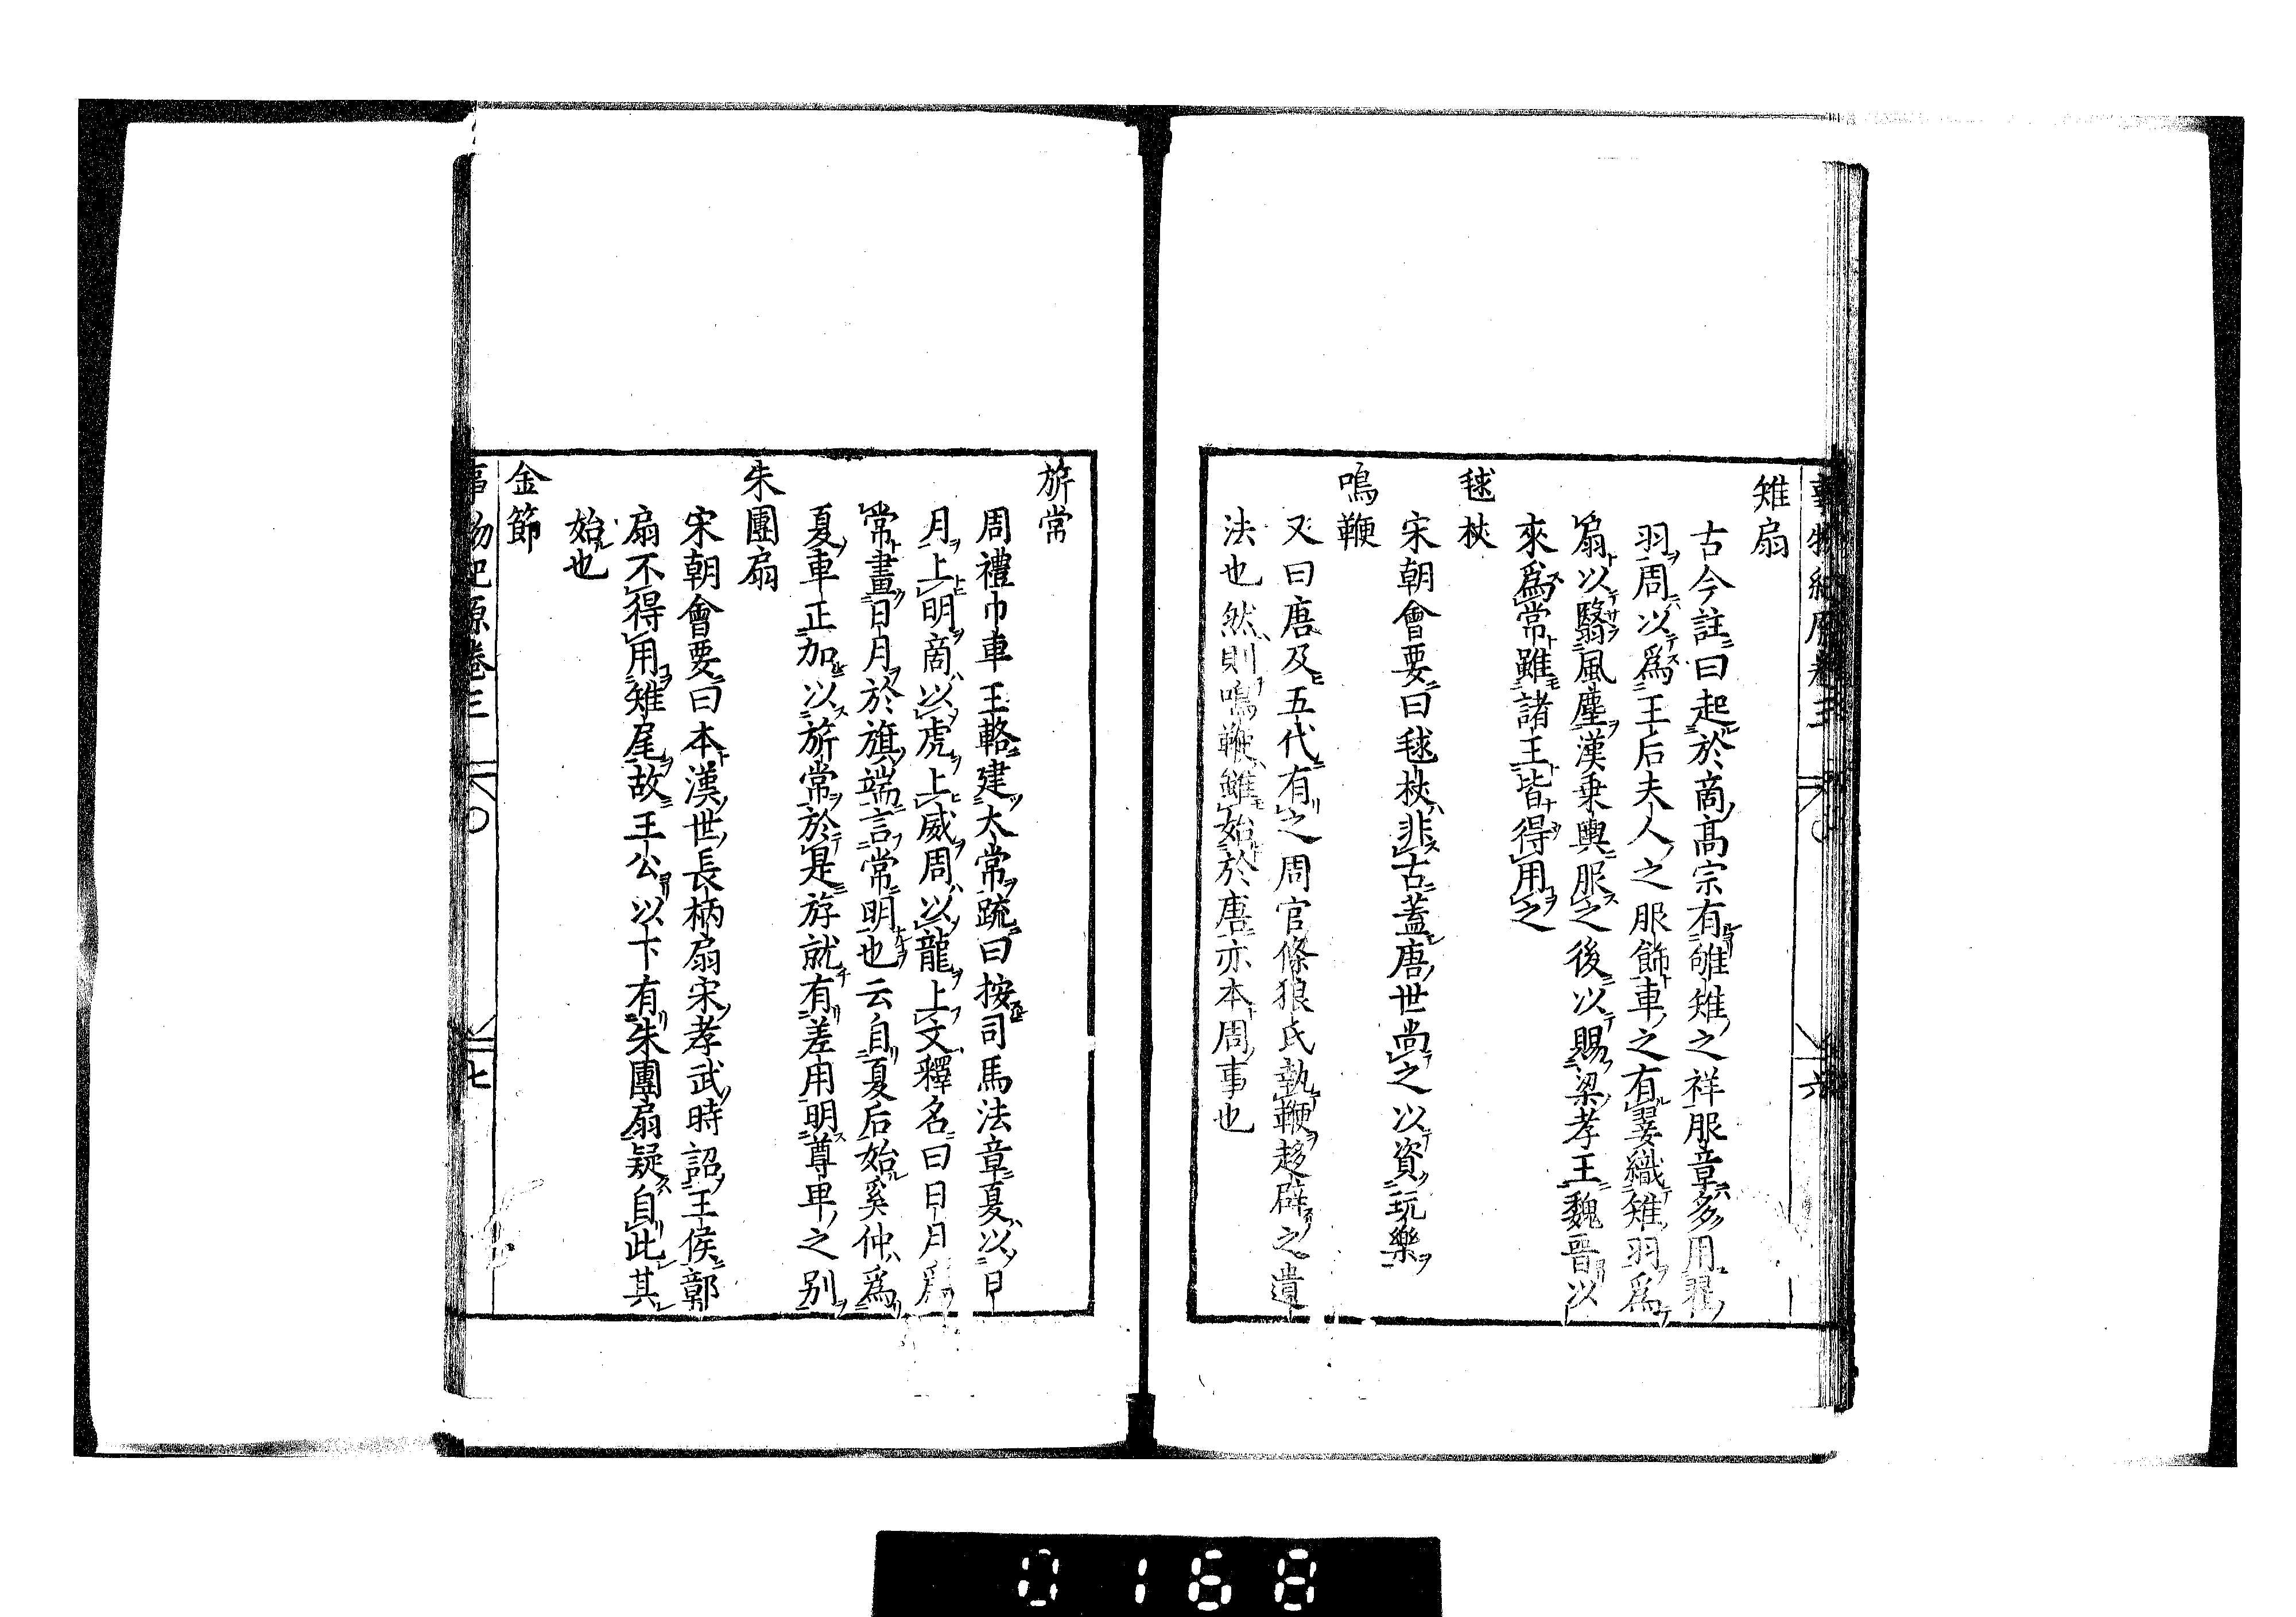 事物紀原卷三 六
雉扇
古今註曰起於商高宗有雊雉之祥服章多用翟
羽周以爲王后夫人之服飾車之有翣織雉羽爲
扇以翳風塵漢乗輿服之後以賜梁孝王魏晉以
來爲常雖諸王皆得用之
毬杖
宋朝會要曰毬杖非古蓋唐世尚之以資玩樂
鳴鞭
又曰唐及五代有之周官條狼氏執鞭趍辟之遺
法也然則鳴鞭雖始於唐亦本周事也
旂常
周禮巾車王輅建太常疏曰按司馬法章夏以日
月上明商以虎上威周以龍上文釋名曰日月爲
常畫日月於旗端言常明也云自夏后始奚仲爲
夏車正加以旂常於是斿就有差用明尊卑之别
朱團扇
宋朝會要曰本漢世長柄扇宋孝武時詔王侯鄣
扇不得用雉尾故王公以下有朱團扇疑自此其
始也
金節
事物紀原卷三 七
0168